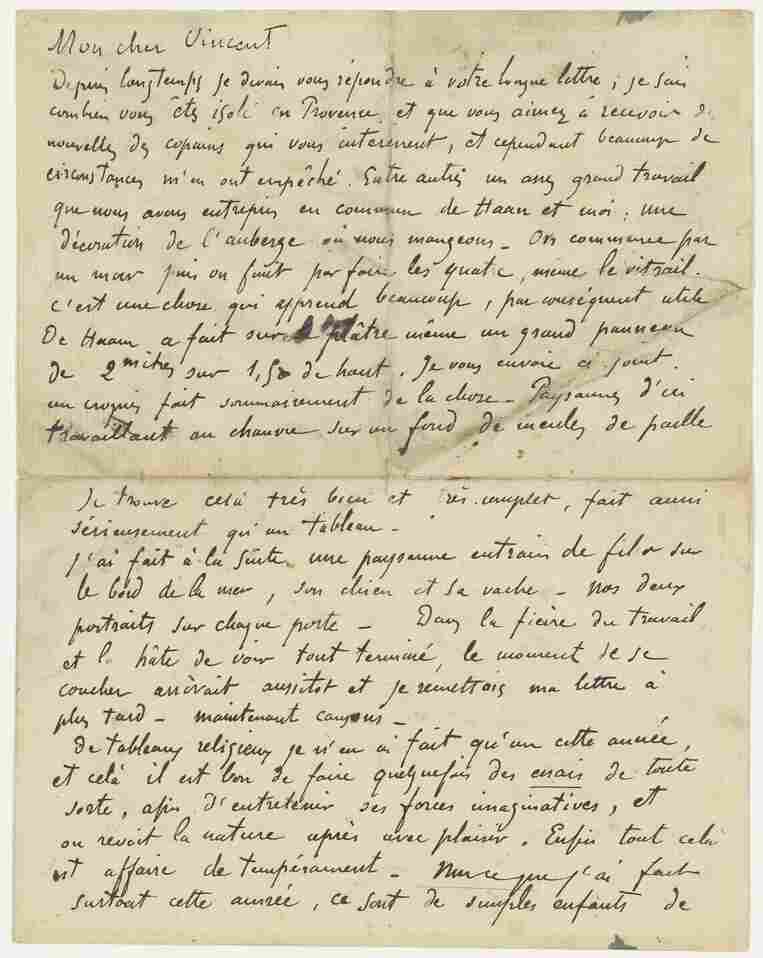 Mon cher Vincent
Depuis longtemps je devais vous répondre à votre longue lettre ; je sais
combien vous êtes isolé en Provence et que vous aimez à recevoir de
nouvelles des copains qui vous intéressent, et cependant beaucoup de
circonstances m'en ont empêché. Entre autres un assez grand travail
que nous avons entrepris en commun de Haan et moi : une
décoration de l'auberge où nous mangeons - On commence par
un mur puis on finit par faire les quatre, même le vitrail.
C'est une chose qui apprend beaucoup, par conséquent utile
De Haan a fait sur le plâtre même un grand panneau
de 2 mètres sur 1,50 de haut. Je vous envoie ci joint.
un croquis fait sommairement de la chose - Paysannes d'ici
travaillant au chanvre sur un fond de meules de paille
Je trouve celà très bien et très complet, fait aussi
sérieusement qu'un tableau -
J'ai fait à la suite une paysanne entrain de filer sur
le bord de la mer, son chien et sa vache - Nos deux
portraits sur chaque porte - Dans la fièvre du travail
et la hâte de voir tout terminé, le moment de se
coucher arrivait aussitot et je remettais ma lettre à
plus tard - maintenant causons -
De tableaux religieux je n'en ai fait qu'un cette année,
et celà il est bon de faire quelquefois des essais de toute
sorte, afin d'entretenir ses forces imaginatives, et
on revoit la nature après avec plaisir. Enfin tout celà
est affaire de tempérament - que j'ai fait
surtout cette année, ce sont de simples enfants de